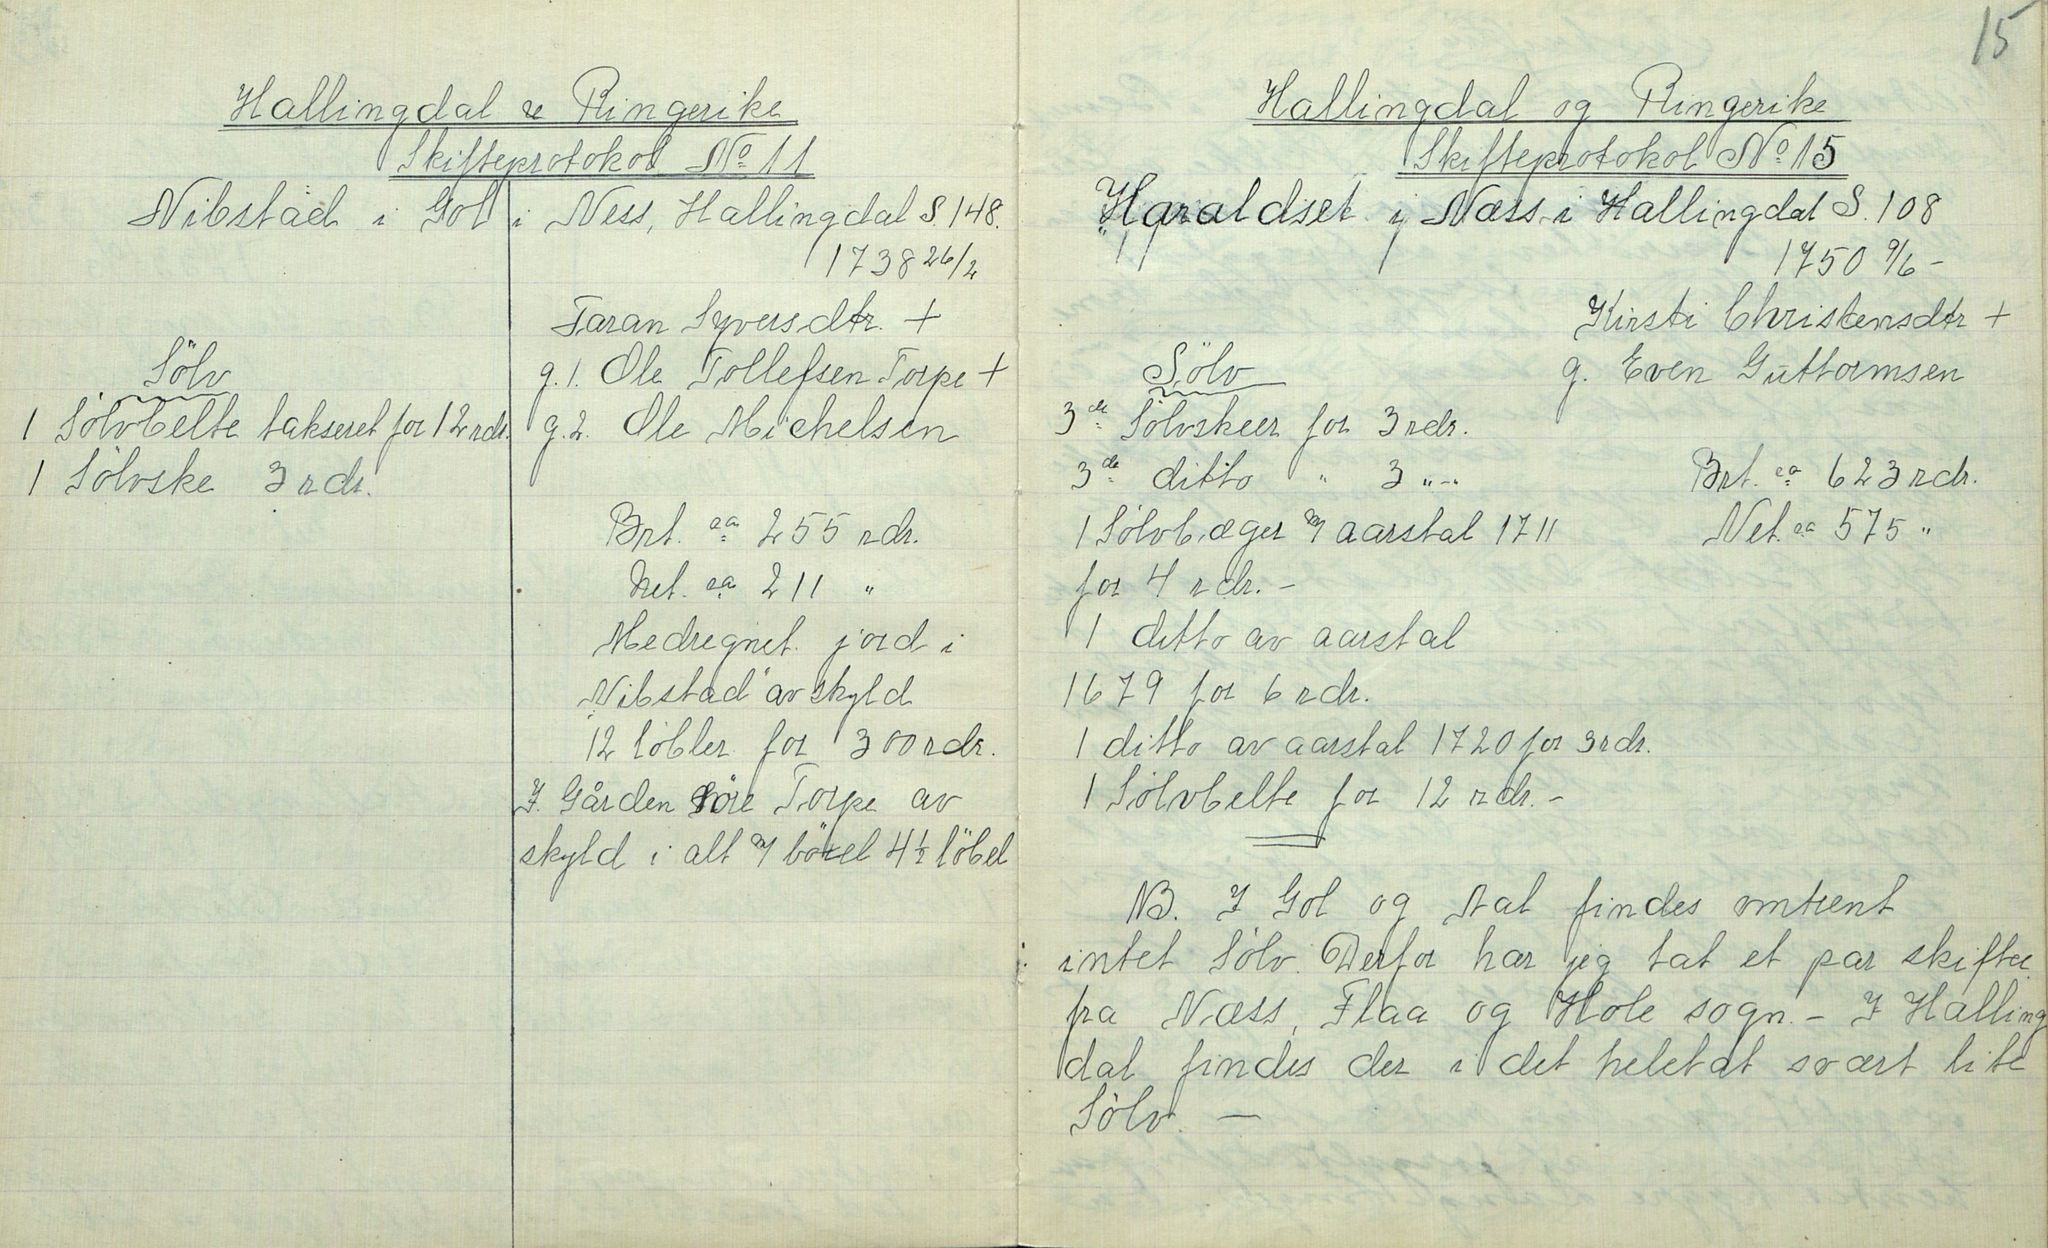 Hallingdal & Ringerike
Skifteprotokol No 11
Nibstad i Gol i Ness, Hallingdal S. 148.
1738 26/2
Taran Syversdtr. +
g. 1. Ole Tollefsen Torpe +
g. 2. Ole Michelsen
Sölv
1 Sölvbelte takseret for 12 rdr.
1 Sölvske 3 rdr.
Brt. ca 255 rdr.
Net. ca 211 "
Medregnet jord i
"Nibstad" av skyld
12 löbler for 300 rdr.
I Gården Söre Torpe av
skyld i alt m/ böxel 4½ löbel
15
Hallingdal og Ringerike
Skifteprotokol No 15
"Haraldset" i Næss i Hallingdal S. 108
1750 9/6 -
Kirsti Christensdtr +
g. Even Guttormsen
Sölv
3 de Sölvskeer for 3 rdr.
3 de ditto " 3 "-"
1 Sölvbæger m/ aarstal 1711
for 4 rdr. -
1 ditto av aarstal
1679 for 6 rdr.
1 ditto av aarstal 1720 for 3 rdr.
1 Sölvbelte for 12 rdr. -
Brt. ca 623 rdr.
Net. ca 575 "
NB. I Gol og Aal findes omtrent
intet Sölv. Derfor har jeg tat et par skifter
fra Næss, Flaa og Hole sogn. - I Halling
dal findes der i det heletat svært lite
Sölv. -